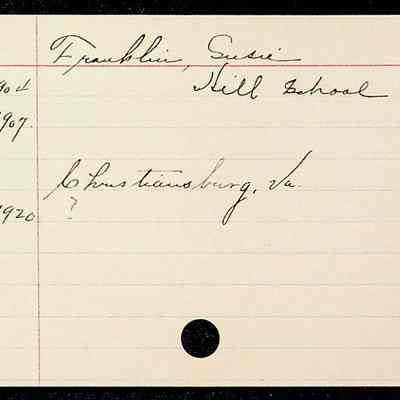 Franklin, Susie
Hill School
1907.
Christiansburg, Va.
1920 ?